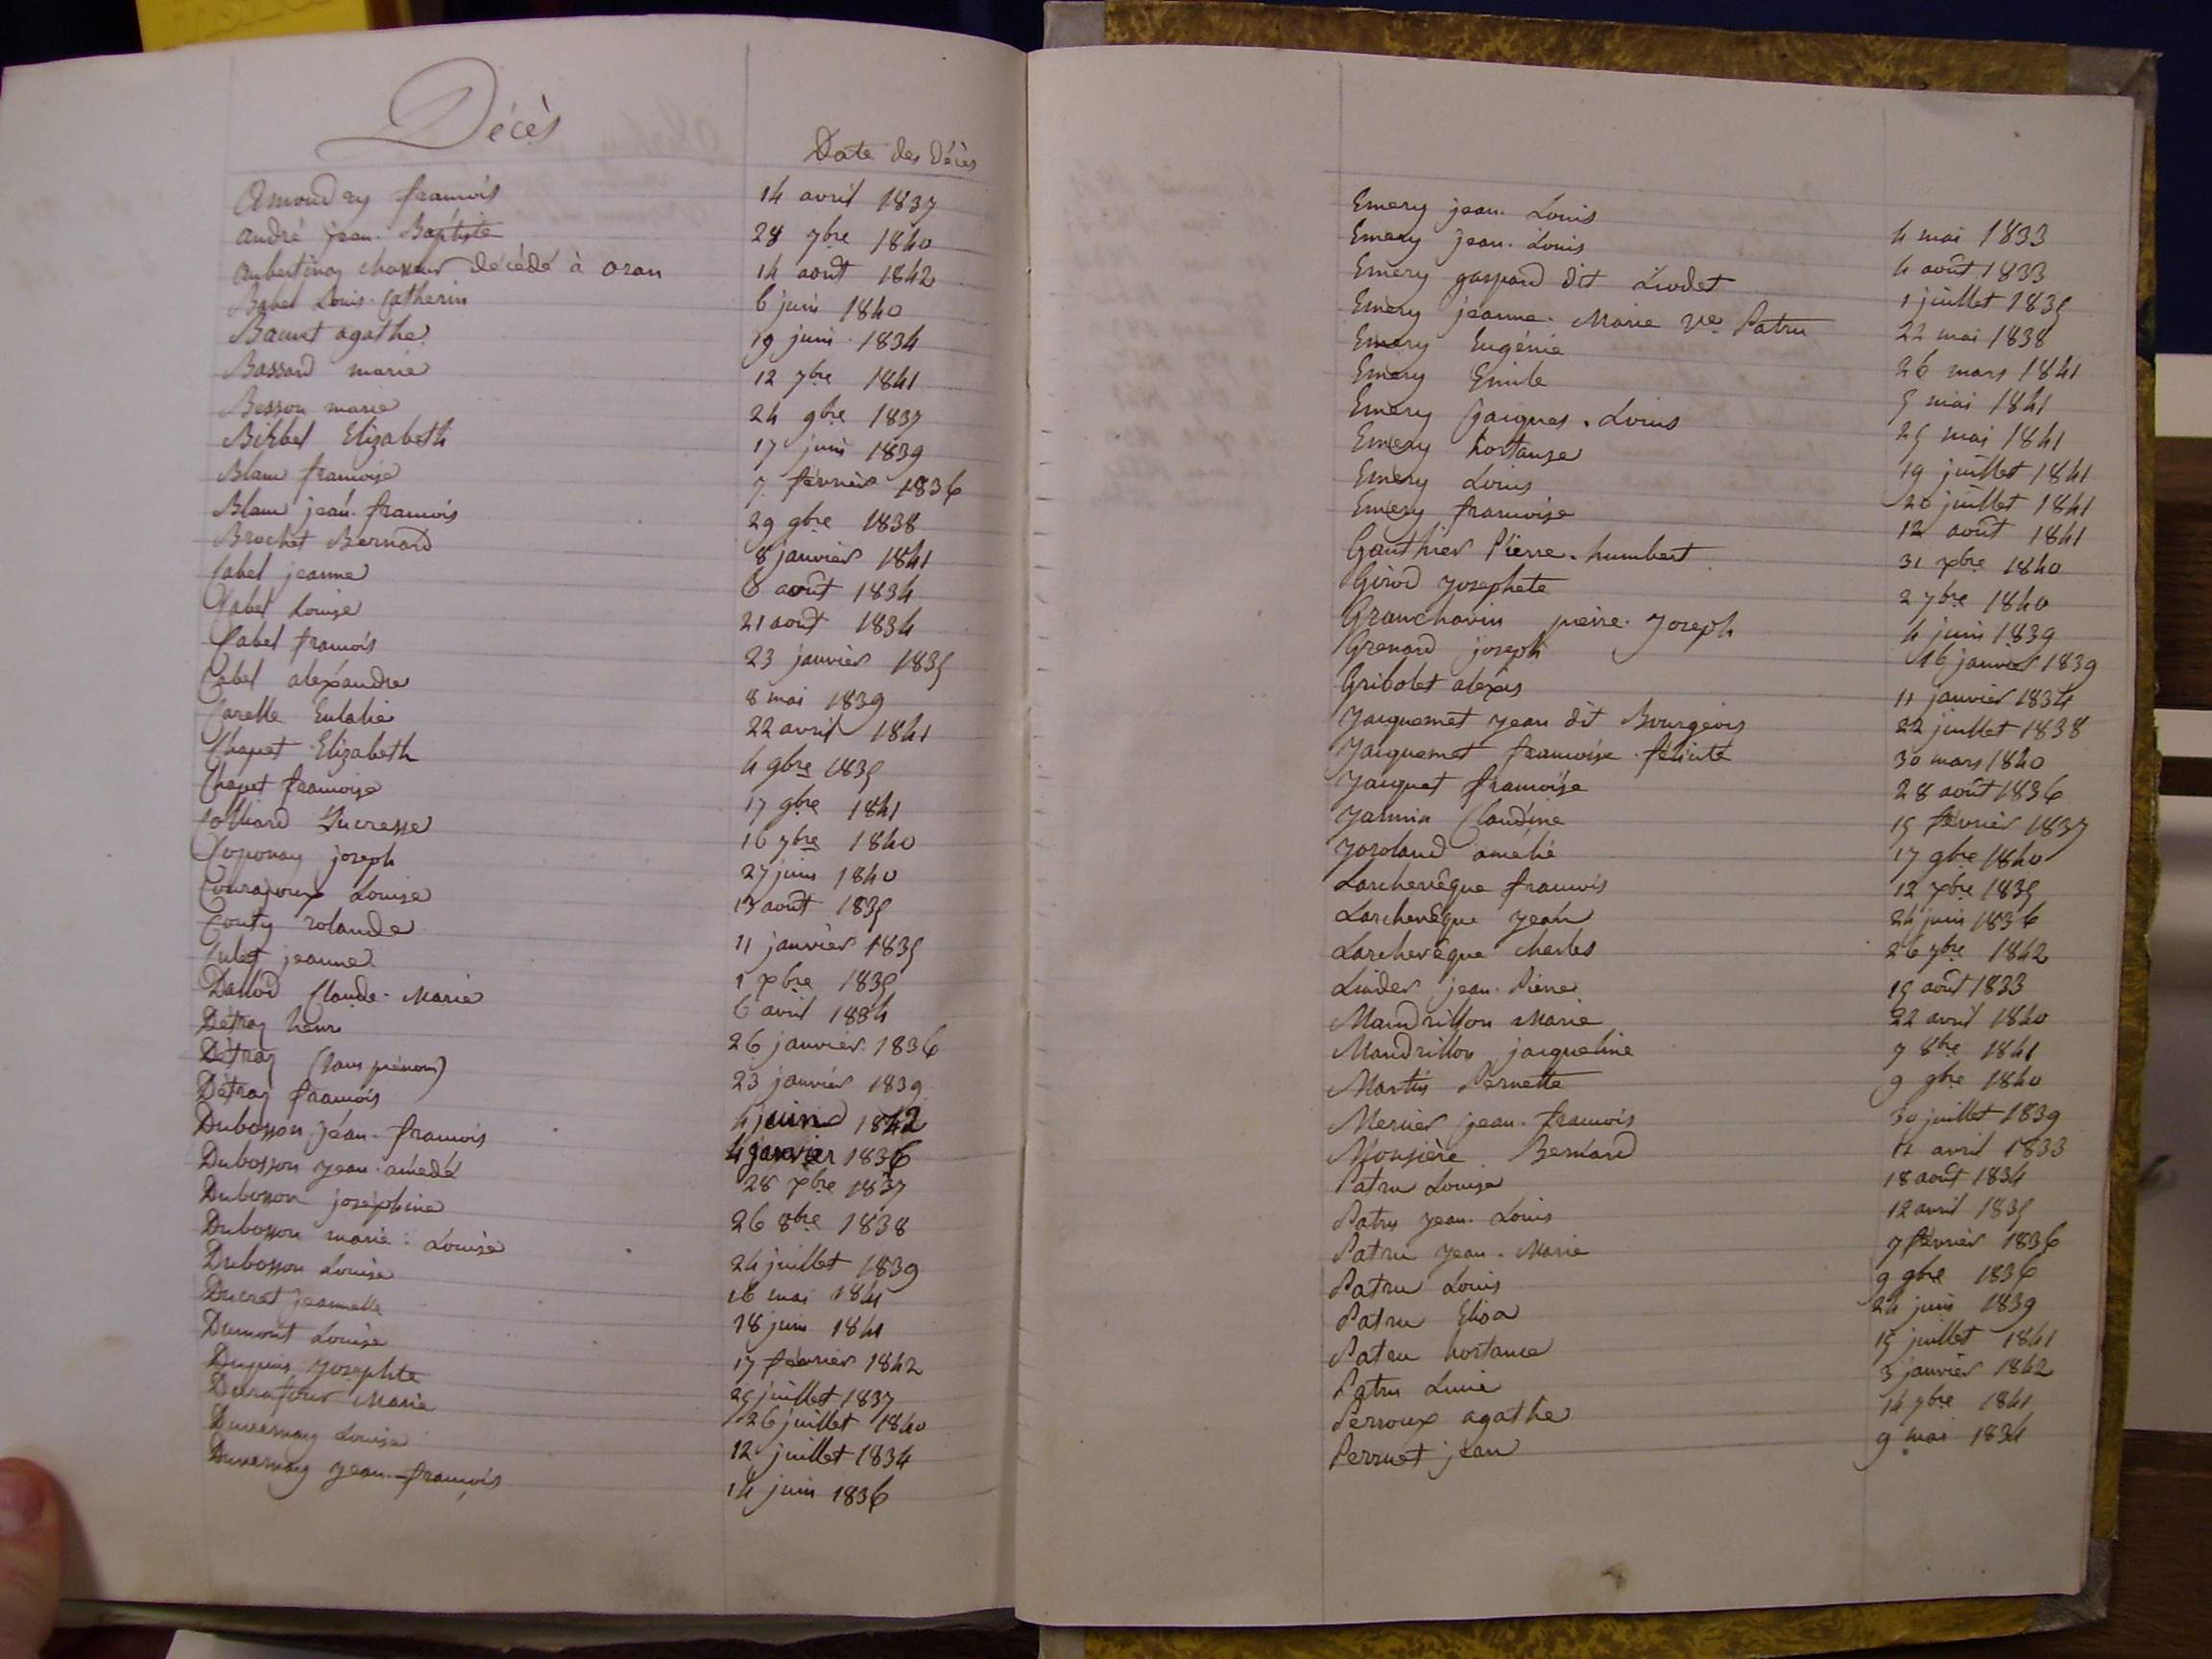 Décès
Date des Décès
Amoudry francois 14 avril 1837
andré jean-Baptiste 28 7bre 1840
aubertinoz chasseur décédé à oran 14 août 1842
Babel Louis-Catherin 6 juin 1840
Bauvet agathe 19 juin 1834
Bassard marie 12 7bre 1841
Besson marie 24 9bre 1837
Elizabeth 17 juin 1839
Blanc francoise 7 février 1836
Blanc jean-francois 29 9bre 1838
Brochet Bernard 8 janvier 1841
Cabel jeanne 6 août 1834
Cabel Louise 21 août 1834
Cabel francois 23 janvier 1835
Cabel alexandre 8 mai 1839
Carelle Eulalie 22 avril 1841
Chapet Elizabeth 4 9bre 1835
Chapet francoise 17 9bre 1841
Colliard Lucresse 16 7bre 1840
Coponay joseph 27 juin 1840
Courajoux Louise 13 août 1835
Couty rolande 11 janvier 1835
Culet jeanne 1 xbre 1835
Dallod Claude-Marie 6 avril 1834
Détraz henri 26 janvier 1836
Détraz (sans prénom) 23 janvier 1839
Détraz francois 4 juin 1842
Dubosson jean-francois 4 janvier 1836
Dubosson jean-amédé 28 xbre 1837
Dubosson josephine 26 8bre 1838
Dubosson marie-Louise 24 juillet 1839
Dubosson Louise 16 mai 1841
Ducret jeannette 18 juin 1841
Dumont Louise 17 février 1842
Dupuis Josephte 25 juillet 1837
Durafour Marie 26 juillet 1840
Duvernay Louise 12 juillet 1834
Duvernay jean-francois 14 juin 1836
Emery jean-Louis 4 mai 1833
Emery jean-Louis 4 août 1833
Emery gaspard dit Liodet 1 juillet 1835
Emery jeanne-Marie Ve Patru 22 mai 1838
Emery Eugénie 26 mars 1841
Emery Emile 5 mai 1841
Emery Jacques-Louis 25 mai 1841
Emery hortanse 19 juillet 1841
Emery Louis 20 juillet 1841
Emery francoise 12 août 1841
Gauthier Pierre-humbert 31 xbre 1840
Girod Josephete 2 7bre 1840
Granchavin pierre-Joseph 4 juin 1839
Grenard joseph 16 janvier 1839
Gribolet alexis 11 janvier 1834
Jacquemet Jean dit Bourgeois 22 juillet 1838
Jacquemet francoise-félicité 30 mars 1840
Jacquet francoise 28 août 1836
Janin Claudine 15 février 1837
Josoland amélie 17 9bre 1840
Larchevêque francois 12 xbre 1835
Larchevêque Jean 24 juin 1836
Larchevêque Charles 26 7bre 1842
Linder jean-Pierre 15 août 1833
Mandrillon Marie 22 avril 1840
Mandrillon jacqueline 7 8bre 1841
Martin Pernette 9 9bre 1840
Mercier jean-francois 30 juillet 1839
Bernard 11 avril 1833
Patru Louise 18 août 1834
Patru Jean-Louis 12 avril 1835
Patru Jean-Marie 7 février 1836
Patru Louis 9 9bre 1836
Patru Elisa 24 juin 1839
Patru hortance 15 juillet 1841
Patru Lucie 3 janvier 1842
Perroux agathe 14 7bre 1841
Perruet jean 9 mai 1834